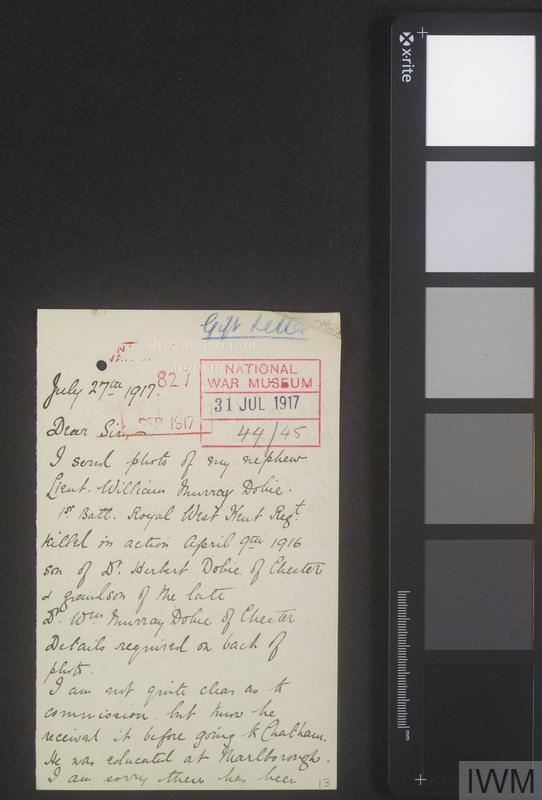 x·rite
Gift Letter
821
July 27th 1917.
NATIONAL
WAR MUSEUM
31 JUL 1917
44/45
SEP 1917
Dear Sir,
I send photo of my nephew
Lieut. William Murray Dobie.
1st Batt. Royal West Kent Regt.
killed in action April 9th 1916
son of Dr. Herbert Dobie of Chester
& grandson of the late
Dr. Wm Murray Dobie of Chester.
Details required on back of
photo.
I am not quite clear as to
commission, but know he
received it before going to Chatham.
He was educated at Marlborough.
I am sorry there has been
13
mm
IWM